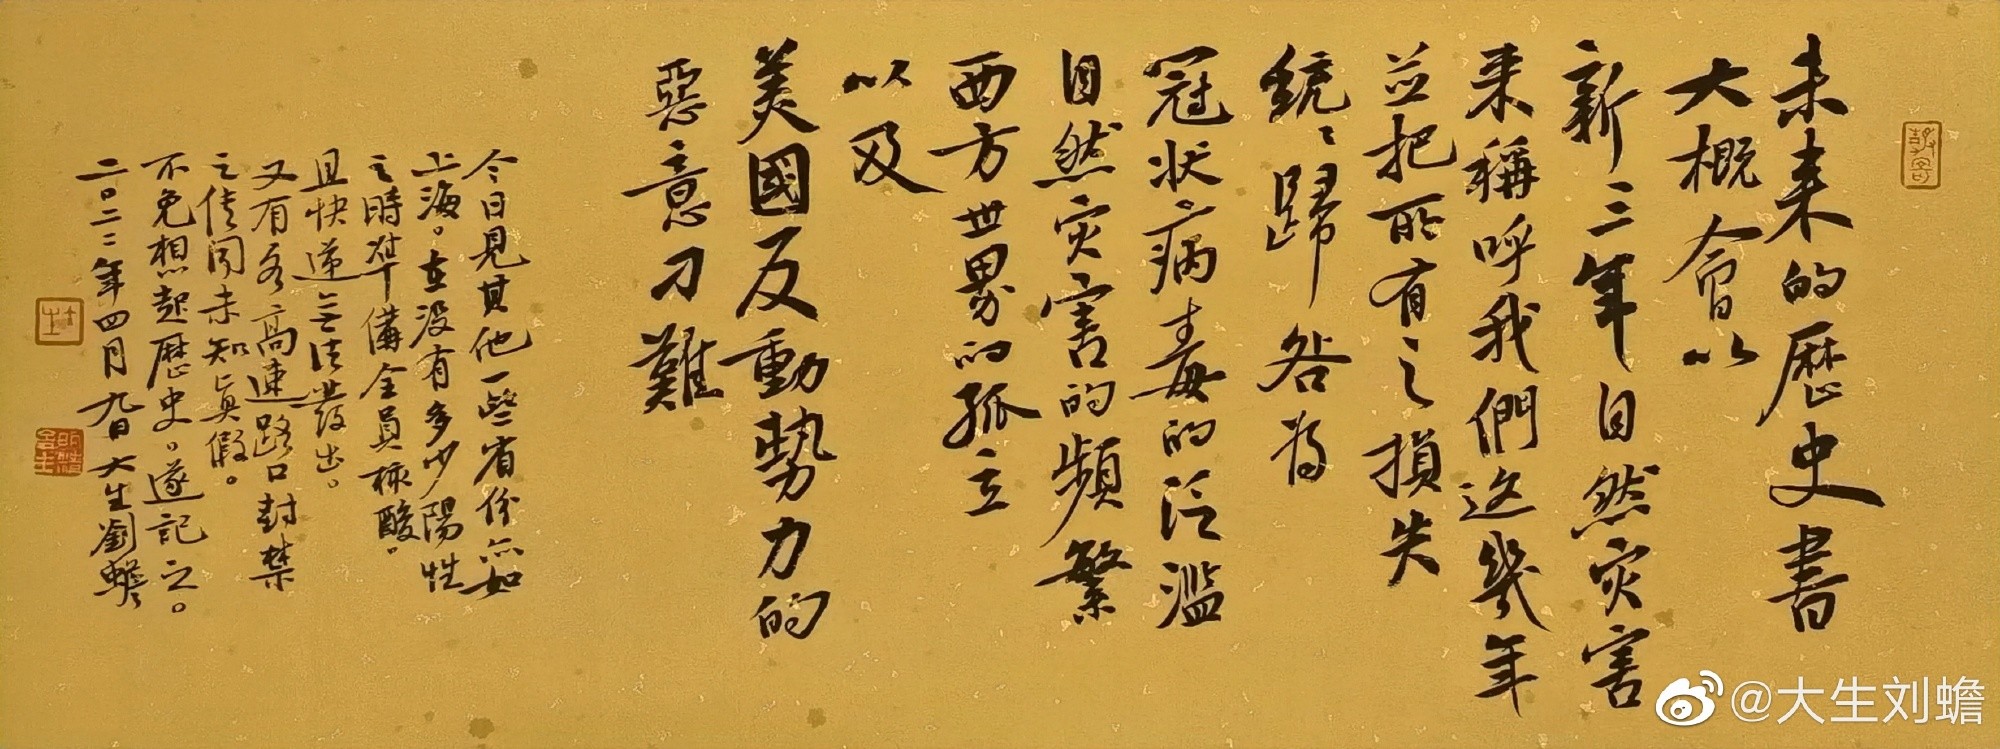 未来的歷史書
大概會以
新三年自然灾害
来稱呼我們这幾年
並把所有之損失
統々歸咎为
冠状病毒的泛濫
自然灾害的頻繁
西方世界的孤立
以及
美國反動勢力的
惡意刁難
今日見其他一些省份亦如
上海。在没有多少陽性
之時準備全員核酸。
且快递無法發出。
又有各高速路口封禁
之传聞未知真假。
不免想起歷史。遂記之。
二〇二二年四月九日大生劉蟾
@大生刘蟾